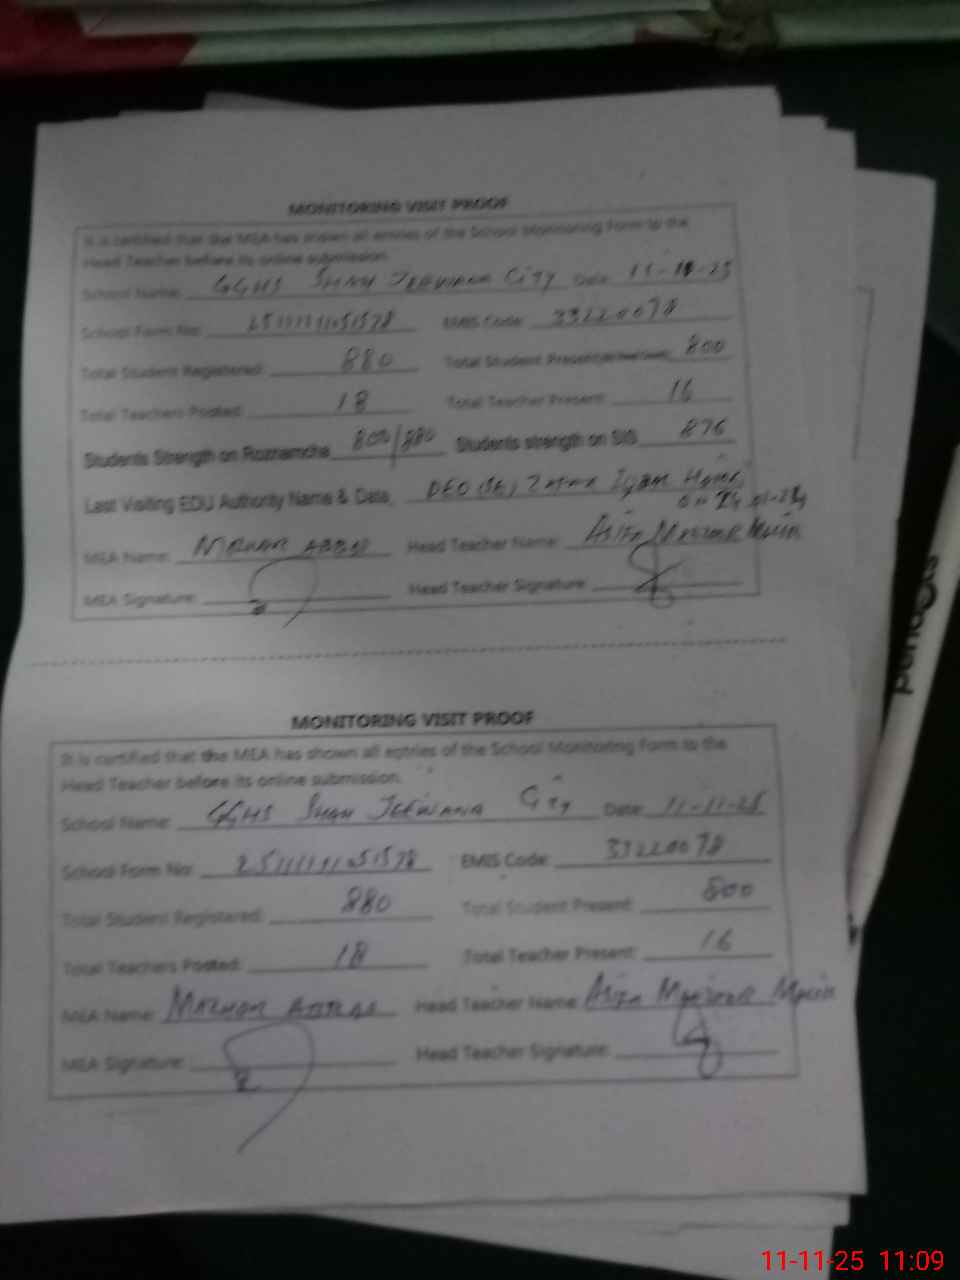 MONITORING VISIT PROOF
It is certified that the MEA has shown all entries of the School Monitoring Form to the
Head Teacher before its online submission.
School Name: GGHS SHAH JEEWANA CITY Date: 11-11-25
School Form No: 2511111051578 EMIS Code: 33220078
Total Student Registered: 880 Total Student Present 800
Total Teachers Posted: 18 Total Teacher Present: 16
Students Strength on Roznamcha 800/880 Students strength on SIS 876
Last Visiting EDU Authority Name & Date, DEO (SE)
MEA Name: MAZHAR ABBAS Head Teacher Name: ASIFA
MEA Signature: Head Teacher Signature:
MONITORING VISIT PROOF
It is certified that the MEA has shown all entries of the School Monitoring Form to the
Head Teacher before its online submission.
School Name: GGHS SHAH JEEWANA City Date: 11-11-25
School Form No: 2511111051578 EMIS Code: 33220078
Total Student Registered: 880 Total Student Present: 800
Total Teachers Posted: 18 Total Teacher Present: 16
MEA Name: MAZHAR ABBAS Head Teacher Name:
MEA Signature: Head Teacher Signature:
11-11-25 11:09